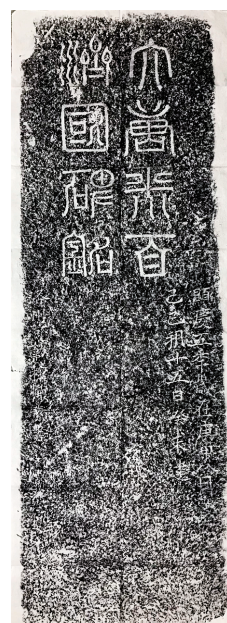 大唐平百
濟國碑銘
顯慶五年歲在庚申八月
己巳朔十五日癸未建